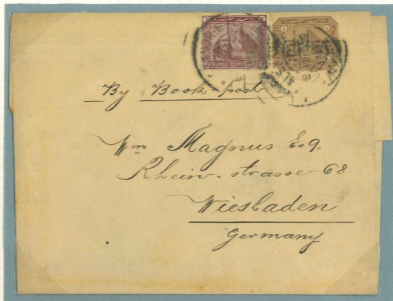 By Book-post
Wm Magnus Esq.
Rhein-strasse 68
Wiesbaden
Germany